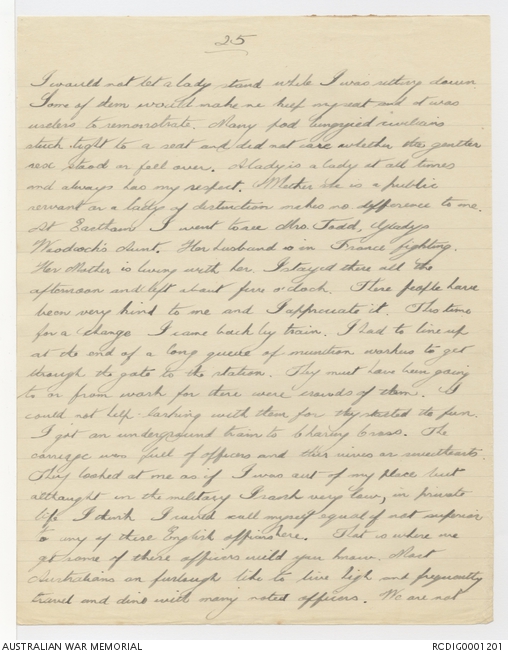 25
I would not let a lady stand while I was sitting down
Some of dem would make me keep my seat and it was
useless to remonstrate. Many pod civilians
stuck tight to a seat and did not care whether the gentler
sex stood or fell over. A lady is a lady at all times
and always has my respect. Whether she is a public
servant or a lady of distinction makes no difference to me.
At Eastham I went to see Mrs. Todd, Gladys
Aunt. Her husband is in France fighting.
Her Mother is living with her. I stayed there all the
afternoon and left about five o'clock. These people have
been very kind to me and I appreciate it. This time
for a change I came back by train. I had to line up
at the end of a long queue of munition workers to get
through the gate to the station. They must have been going
to or from work for there were crowds of them. I
could not help larking with them for they started the fun.
I got an underground train to Charing Cross. The
carriage was full of officers and their wives or sweethearts.
They looked at me as if I was out of my place but
althought in the military I rank very low, in private
life I think I could call myself equal if not superior
to any of these English officers here. That is where we
get some of these officers wild you know. Most
Australians on furlough like to live high and frequently
travel and dine with many noted officers. We are not
AUSTRALIAN WAR MEMORIAL
RCDIG0001201